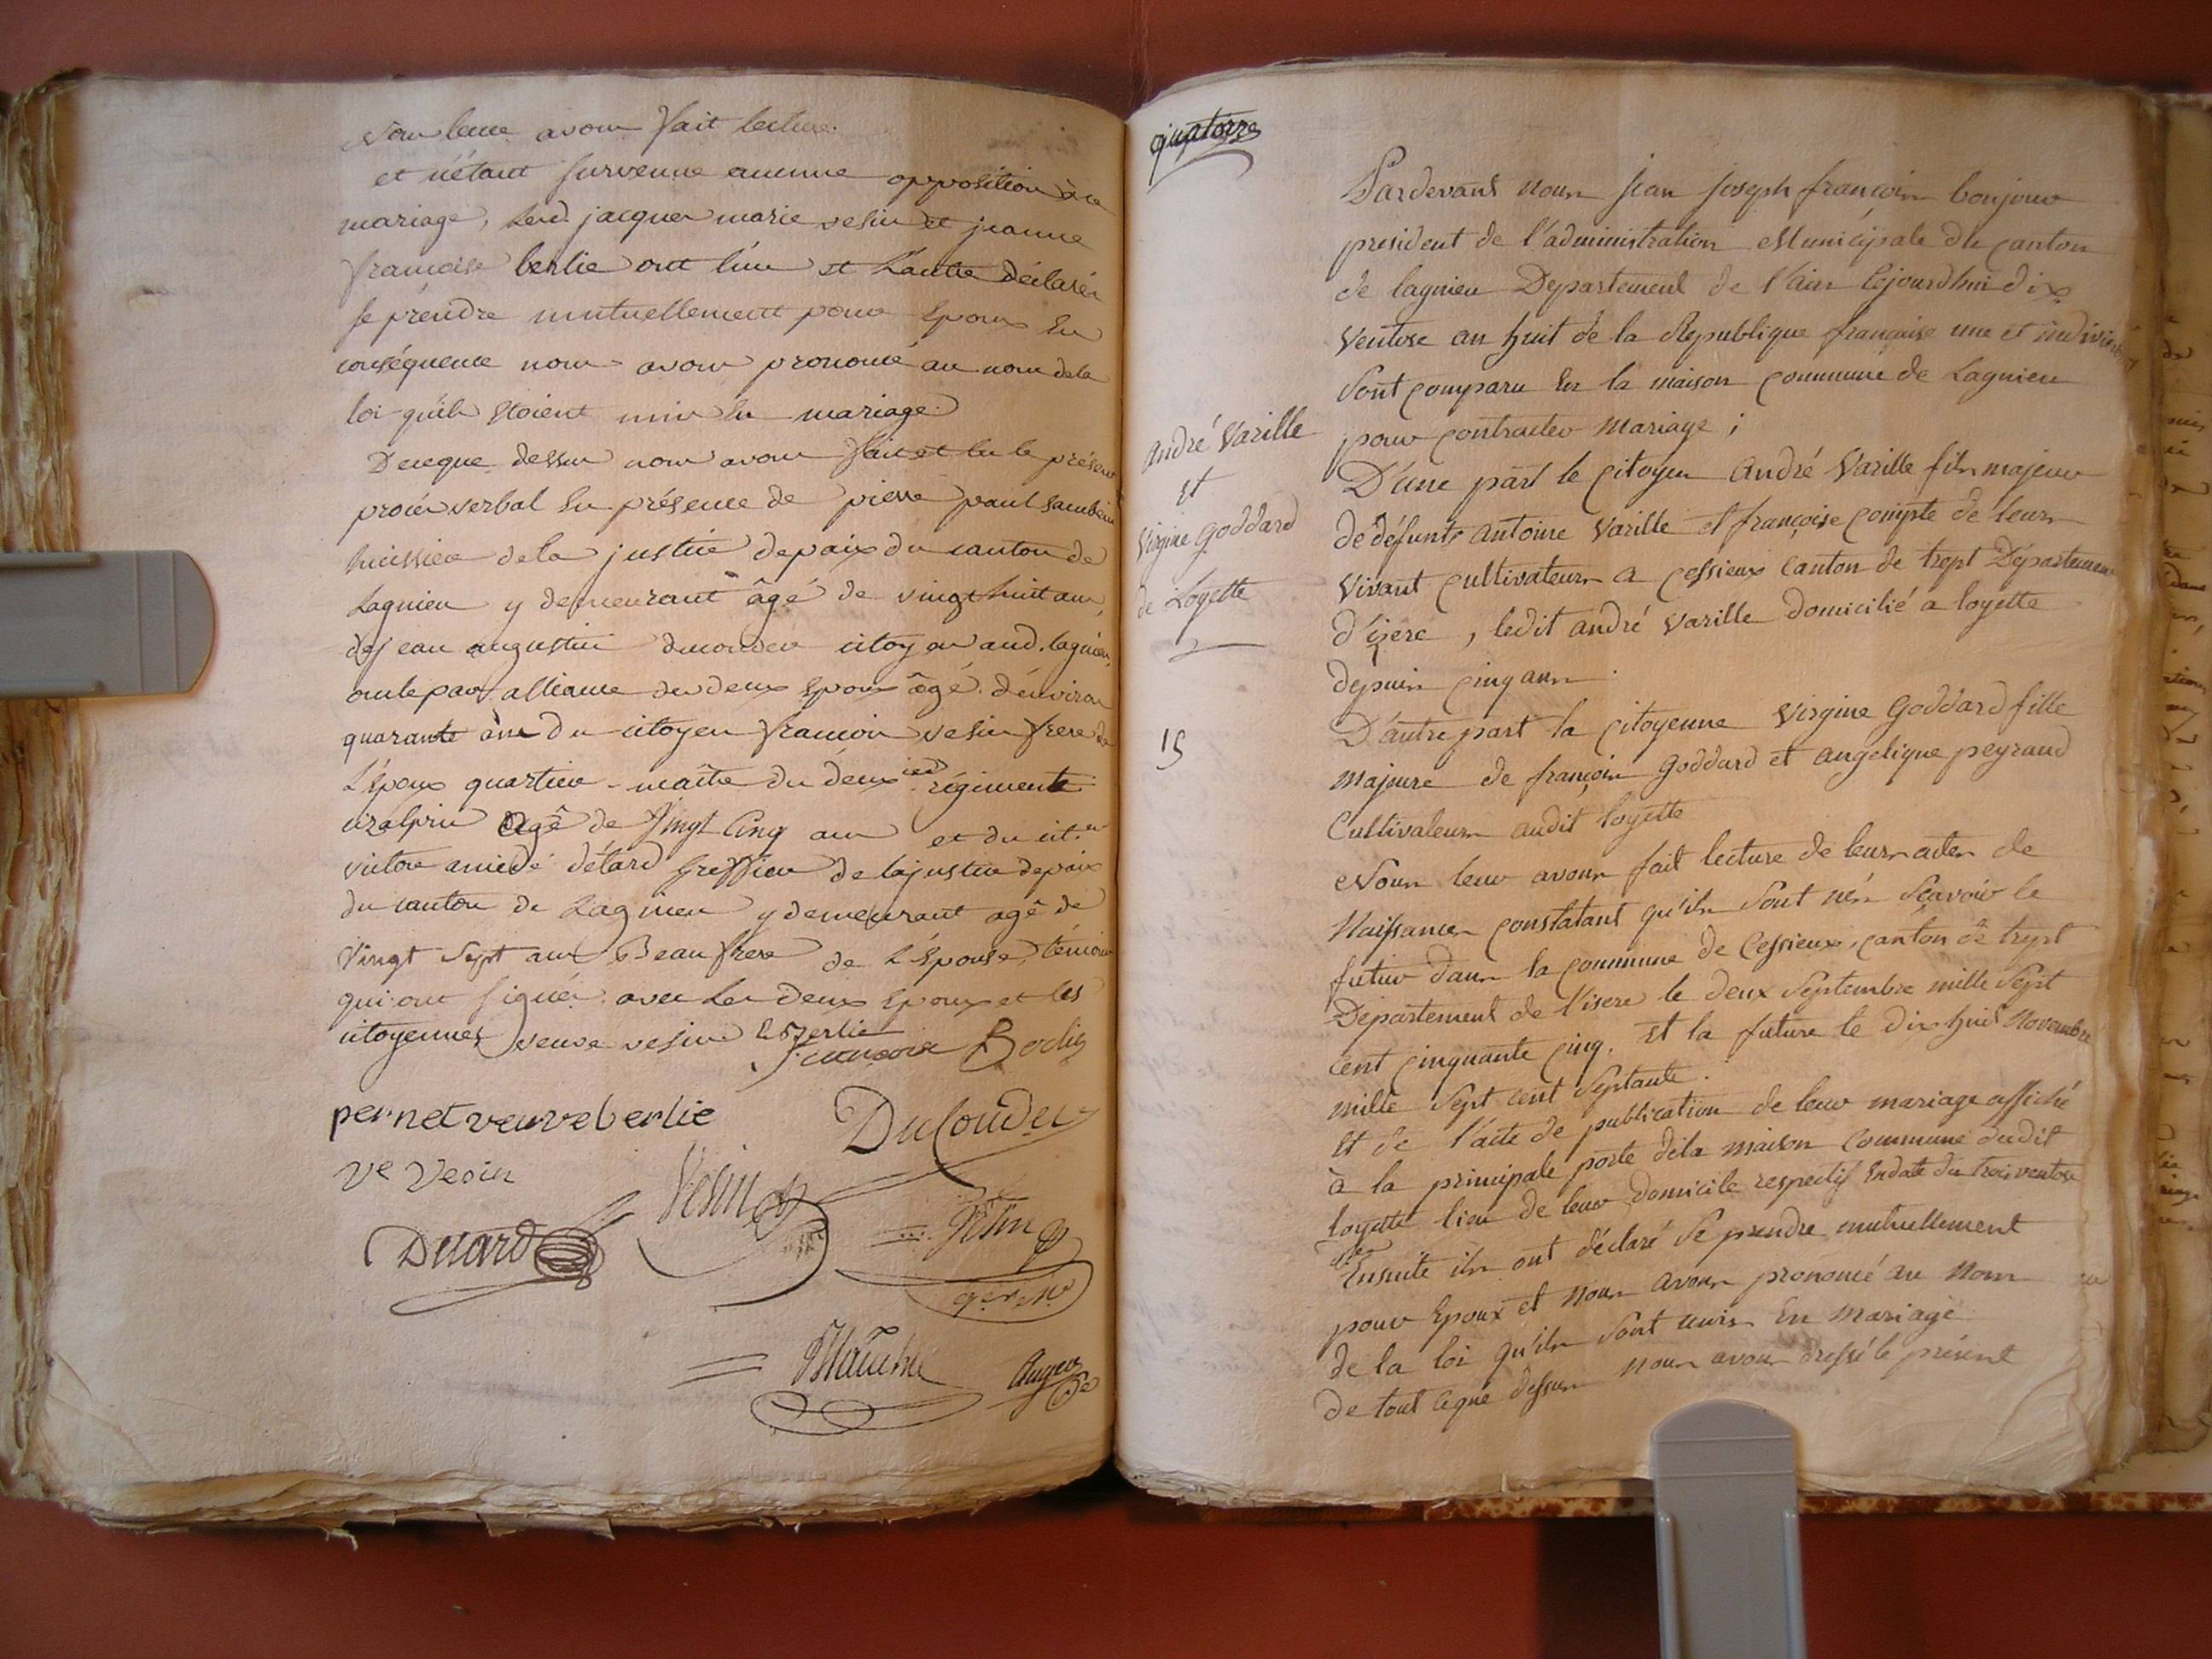 Nous leur avons fait lecture.
et n'étant survenue aucune opposition à ce
mariage, lesd. jacques marie vesin et jeanne
françoise berlie ont l'un et l'autre déclarés
se prendre mutuellement pour Epoux En
conséquence nous avons prononcé au nom de la
loi qu'ils Etoient unis En mariage
De ceque dessus nous avons fait et lu le présent
procès verbal En présence de pierre paul
huissier de la justice de paix du canton de
Lagnieu y demeurant âgé de vingt huit ans,
de jean augustin citoyen aud. lagnieu,
oncle par alliance des deux Epoux âgé d'environ
quarante ans du citoyen françois vesin frere de
L'Epoux quartier-maître du deux.ieme régiment
cizalpin agé de Vingt Cinq ans et du cit.en
victor amédé détard Greffier de la justice de paix
du canton de Lagnieu y demeurant agé de
Vingt Sept ans Beaufrere de L'Epouse, témoins
qui ont signés avec les deux Epoux et les
citoyennes veuve vesin & Berlie
pernet veuve berlie
Ducouder
Ve Vesin
Vesin
Detard
quatorze
Pardevant nous jean joseph françois bonjour
president de l'administration Municipale du Canton
de lagnieu Departement de l'ain Cejourdhui dix
Ventose an huit de la Republique française une et indivisible
Sont Comparu En la maison Commune de Lagnieu
pour Contracter Mariage ;
André Varille
Et
Virgine Goddard
de Loyette
D'une part le Citoyen André Varille fils majeur
de défunts antoine Varille et françoise Compte de leurs
Vivant Cultivateurs a Cessieux Canton de trept Département
d'isere, ledit andré Varille domicilié a loyette
depuis Cinq ans.
15
D'autre part la Citoyenne Virgine Goddard fille
majeure de françois Goddard et angelique peyraud
Cultivateurs audit loyette
Nous leur avons fait lecture de leurs actes de
Naissances Constatant qu'ils Sont nés Sçavoir le
futur dans la Commune de Cessieux, Canton de trept
Département de l'isere le deux Septembre mille Sept
Cent Cinquante Cinq. Et la future le dix huit Novembre
mille Sept cent Septante.
Et de l'acte de publication de leur mariage affiché
à la principale porte de la maison Commune dudit
loyette lieu de leur domicile respectif En date du trois ventose
Ensuite ils ont déclaré Se prendre mutuellement
pour Epoux et Nous avons prononcé au Nom
de la loi qu'ils Sont unis En Mariage
de tout ceque dessus nous avons dressé le présent